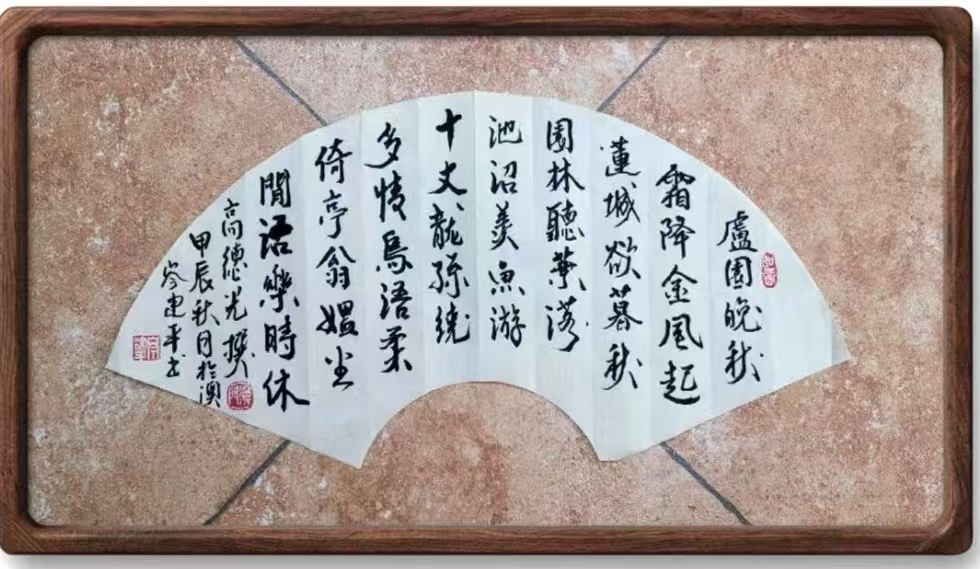 盧園晚秋
霜降金風起
蓮城欲暮秋
園林聽葉落
池沼羨魚游
十丈龍孫繞
多情鳥語柔
倚亭翁媼坐
閒語樂時休
高德光撰
甲辰秋月於澳
岑建平书